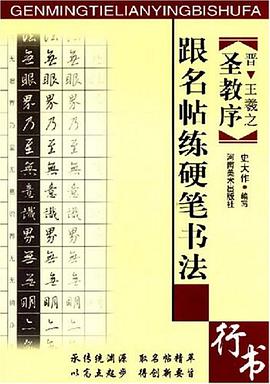 GENMINGTIELIANYINGBISHUFA
晋·王羲之
《圣教序》
跟名帖练硬笔书法
史大作·编写
河南美术出版社
法
无 無 無
眼 眼 眼
界 界 界
乃 乃 乃
至 至 至
无 無 無
意 意 意
识 識 識
界 界 界
无 無 無
明 明 明
行书
承传统渊源 取名帖精萃
以高点起步 得创新要旨